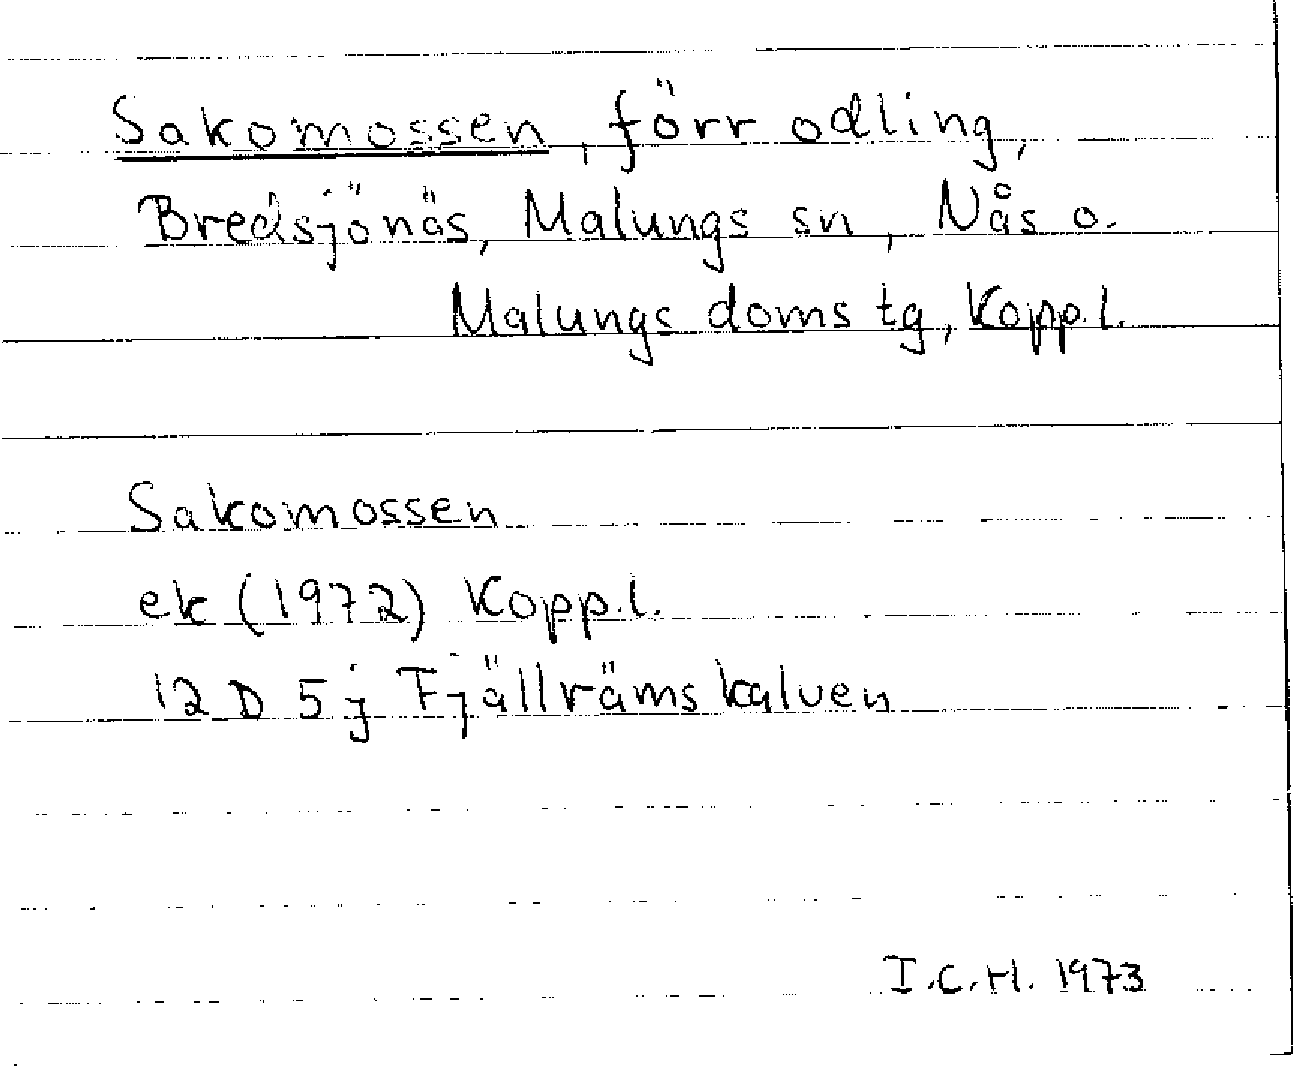 Sakomossen, förr odling,
Bredsjönäs, Malungs sn, Nås o.
Malungs doms tg, Kopp.l.
Sakomossen
ek (1972) Kopp.l.
12 D 5 j Fjällrämskalven
I.C.H. 1973